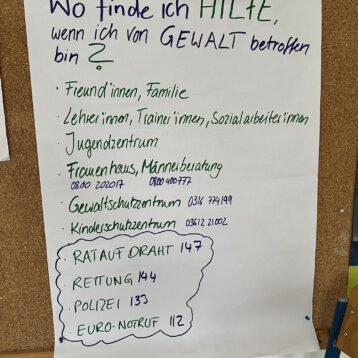 Wo finde ich HILFE,
wenn ich von GEWALT betroffen
bin ?
· Freund*innen, Familie
· Lehrer*innen, Trainer*innen, Sozialarbeiter*innen
Jugendzentrum
· Frauenhaus, Männerberatung
0800 202017 0800 400777
· Gewaltschutzzentrum 0316 774199
· Kinderschutzzentrum 03612 21002
· RAT AUF DRAHT 147
· RETTUNG 144
· POLIZEI 133
· EURO-NOTRUF 112